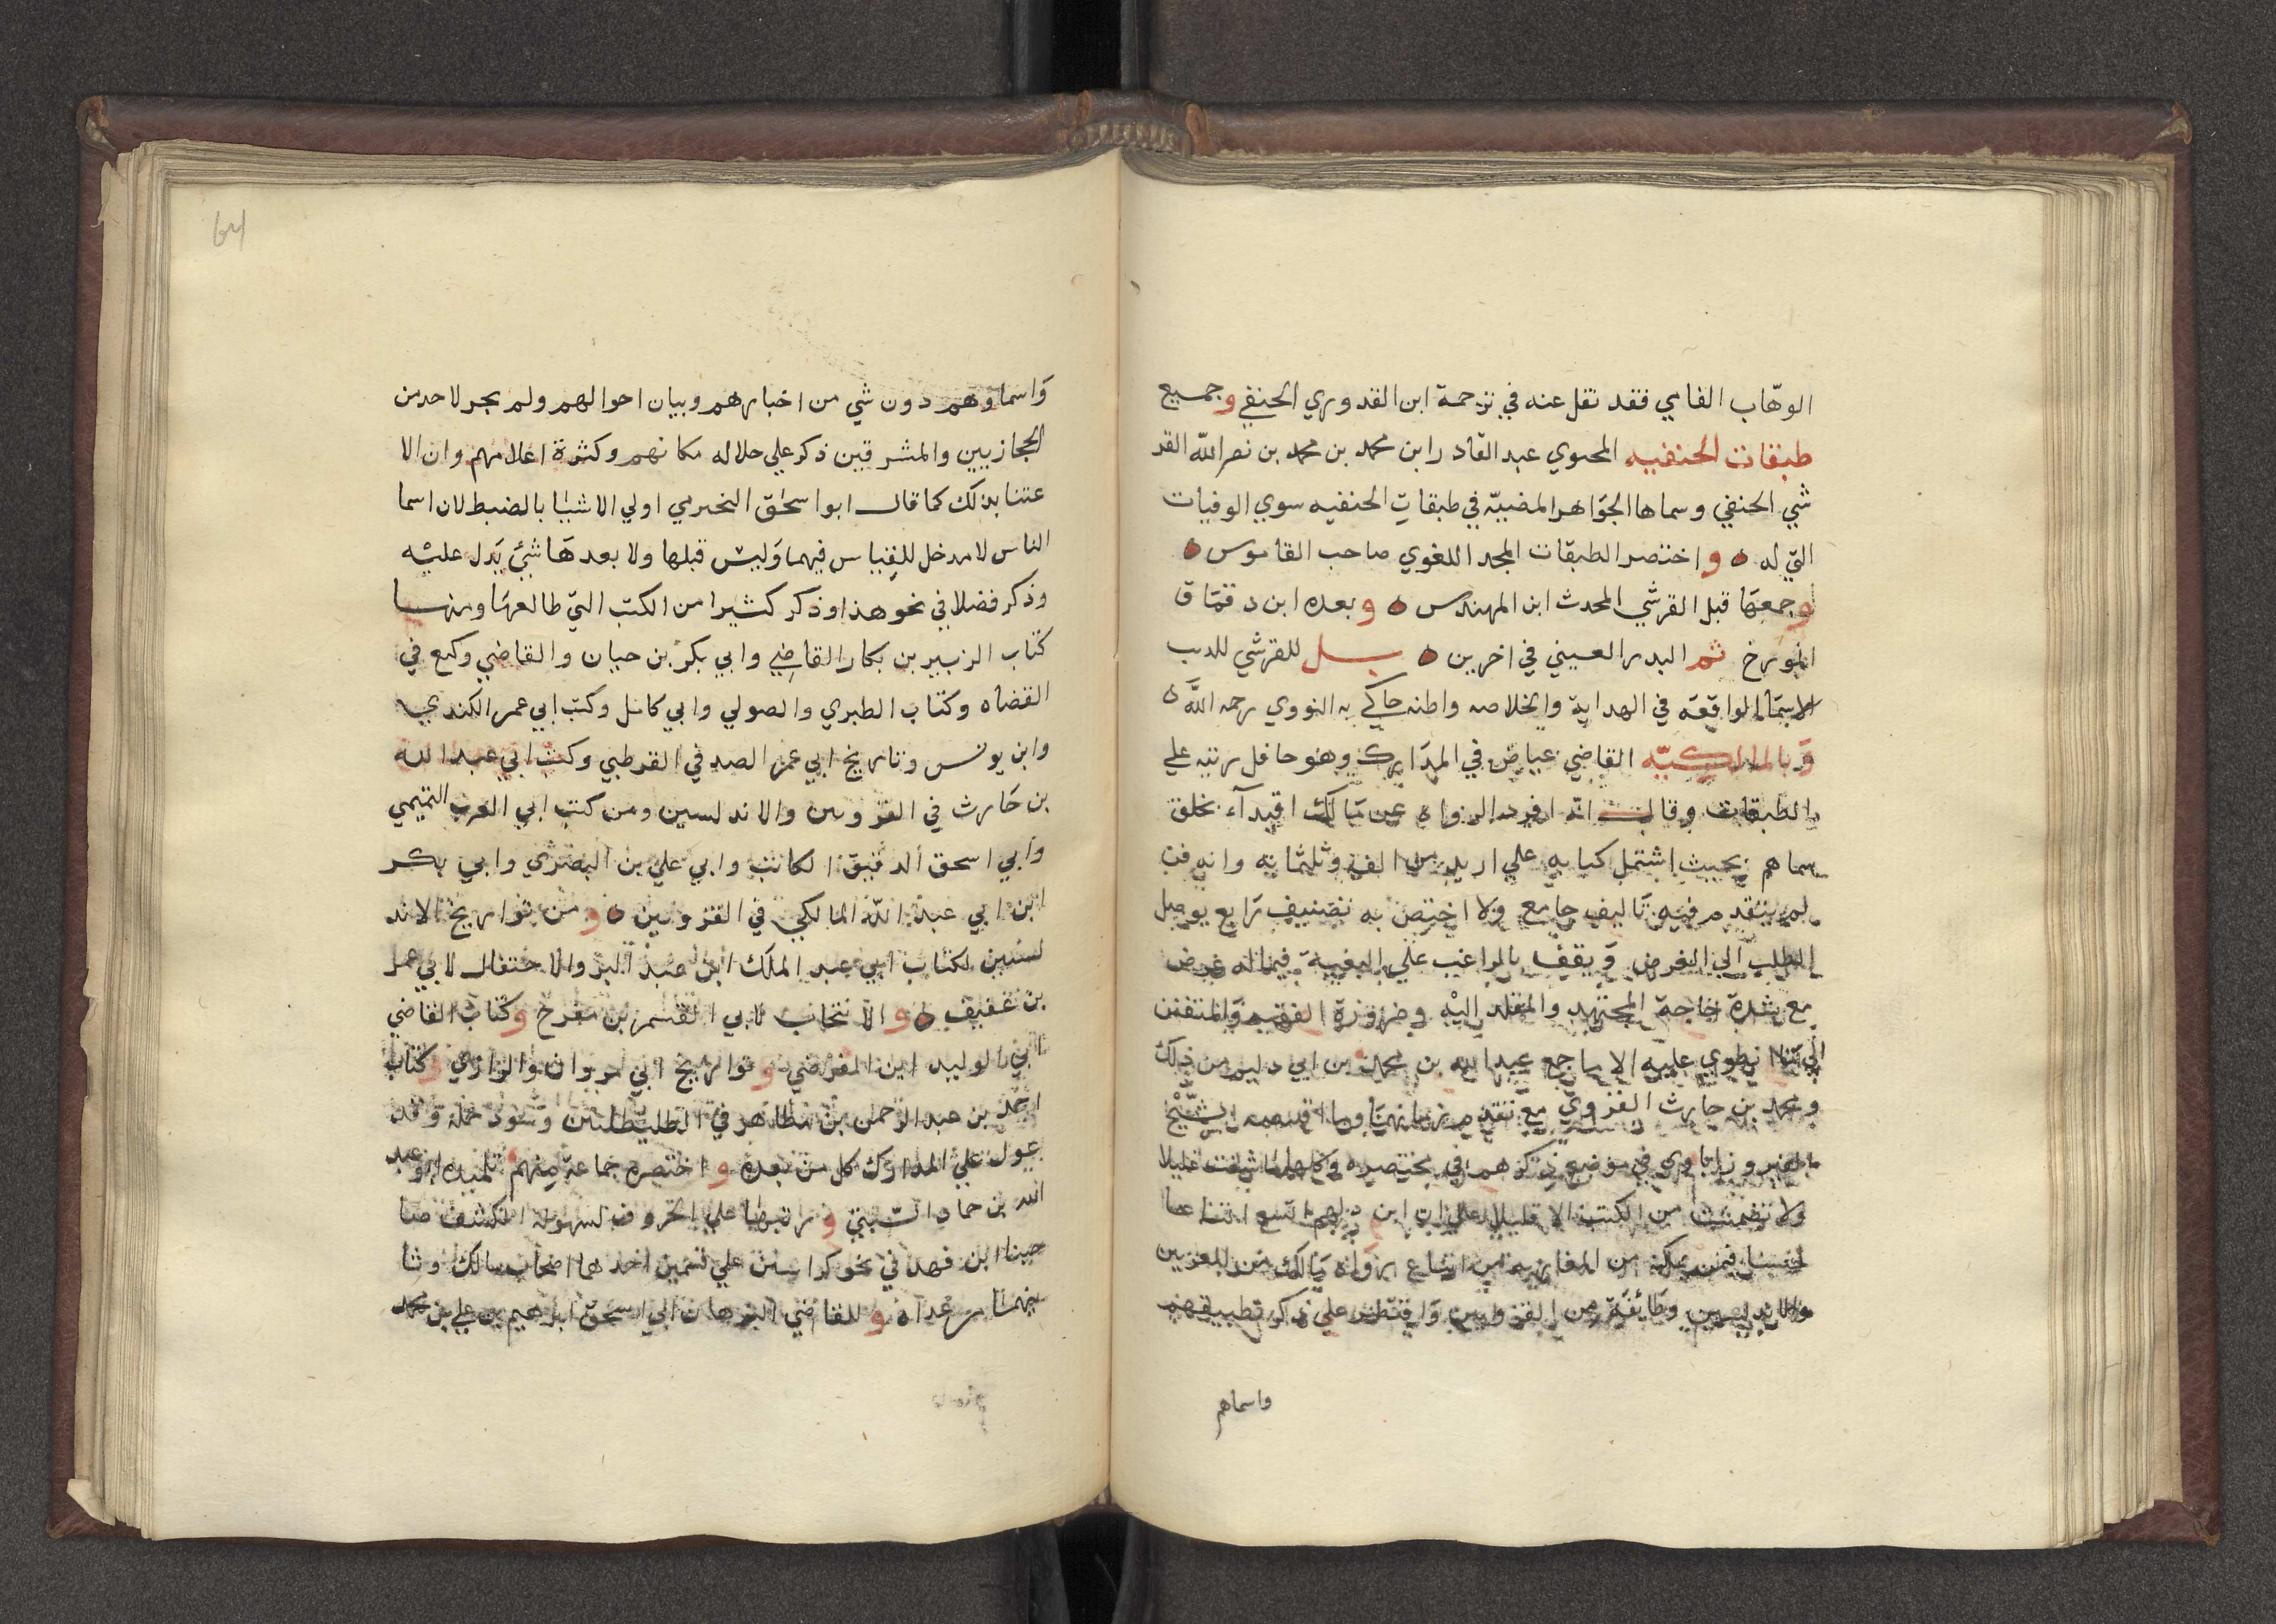 الوهّاب الفامي فقد نقل عنه في ترجمة ابن القدوري الحنفي وجميع
طبقات الحنفيه المحيوي عبد القادر ابن محمد بن محمد بن نصر الله القر
شي الحنفي وسماها الجواهر المضيّه في طبقات الحنفيه سوي الوفيات
التي له ه واختصر الطبقات المجد اللغوي صاحب القاموس ه
وجمعها قبل القرشي المحدث ابن المهندس ه وبعده ابن دقماق
المورخ ثم البدر العيني في اخرين ه بل للقرشي
الاسما الواقعه في الهداية والخلاصه واظنه حاكي به النووي رحمه الله ه
وبالمالكيّه القاضي عياض في المدارك وهو حافل رتبه علي
الطبقات وقال انه افرد الرواه عن مالك
بحيث اشتمل كتابه علي ازيد من الف وثلثمايه وانه فن
لم يتقدم فيه تاليف جامع ولا اختص به تصنيف رايع يوصل
الطلب الي الغرض ويقف بالراغب علي البغيه فيما له غرض
مع شدة حاجة المجتهد والمقلد اليه وضرورة الفقيه والمتفنن
الي ما ينطوي عليه الا ما جمع عبد الله بن محمد بن ابي دليم من ذلك
ومحمد بن حارث القروي مع تقدم زمانهما وما الشيخ
في موضع ذكرهم في مختصره وكلها ما شفت غليلا
ولا تضمنت من الكتب الا قليلا علي ان ابن دليم اتسع
من المغاربه من اتباع رواة مالك من المصريين
والاندلسيين وطايفة من القرويين واقتصر علي ذكر تطبيقهم
واسماهم
واسماوهم دون شي من اخبارهم وبيان احوالهم ولم يجر لاحد من
الحجازيين والمشرقين ذكر علي جلاله مكانهم وكثرة اعلامهم وان الا
عتنا بذلك كما قال ابو اسحٰق النجيرمي اولي الاشيا بالضبط لان اسما
الناس لا مدخل للقياس فيها وليس قبلها ولا بعدها شيئ يدل عليه
وذكر فضلا في نحو هذا وذكر كثيرا من الكتب التي طالعها ومنها
كتاب الزبير بن بكار القاضي وابي بكر بن حيان والقاضي وكيع في
القضاه وكتاب الطبري والصولي وابي كامل وكتب ابي عمر الكندي
وابن يونس وتاريخ ابي عمر الصدفي القرطبي وكتب ابي عبد الله
بن حارث في القرويين والاندلسين ومن كتب ابي العرب التميمي
وابي اسحق الدقيق الكاتب وابي علي بن البصري وابي بكر
ابن ابي عبد الله المالكي في القرويين ه ومن تواريخ الاند
لسين لكتاب ابي عبد الملك ابن عبد البر والاحتفال لابي عمر
بن عفيف ه والانتخاب لابي القسم بن مفرح وكتاب القاضي
ابي الوليد ابن الفرضي وتواريخ ابي مروان والرازي وكتاب
احمد بن عبد الرحمن بن مظاهر في الطليطلين وسود جملة وقد
عول علي المدارك كل من بعده واختصره جماعة منهم تلميذه ابو عبد
الله بن حماد السبتي ورتبها علي الحروف لسهوله الكشف صا
حبنا ابن فهد في نحو كراسين علي قسمين احدهما اصحاب مالك وثا
نيهما من عداه وللقاضي البرهان ابي اسحق ابراهيم بن علي بن محمد